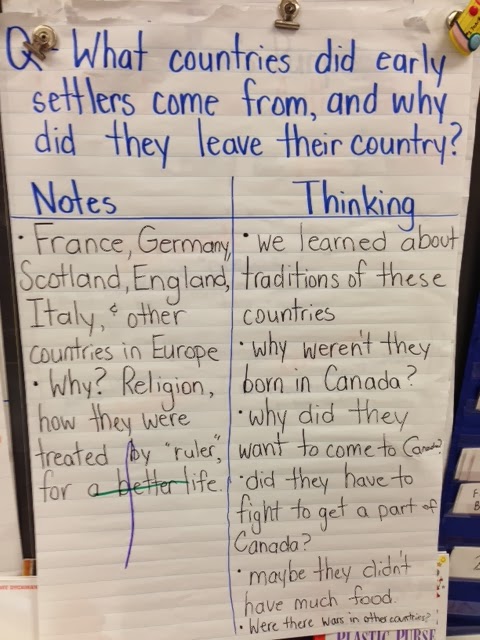 Q - What countries did early
settlers come from, and why
did they leave their country?
Notes
• France, Germany,
Scotland, England,
Italy, & other
countries in Europe
• Why? Religion,
how they were
treated by "ruler",
for a better life.
Thinking
• we learned about
traditions of these
countries
• why weren't they
born in Canada?
• why did they
want to come to Canada?
• did they have to
fight to get a part of
Canada?
• maybe they didn't
have much food.
• Were there wars in other countries?
PLASTIC PURSE